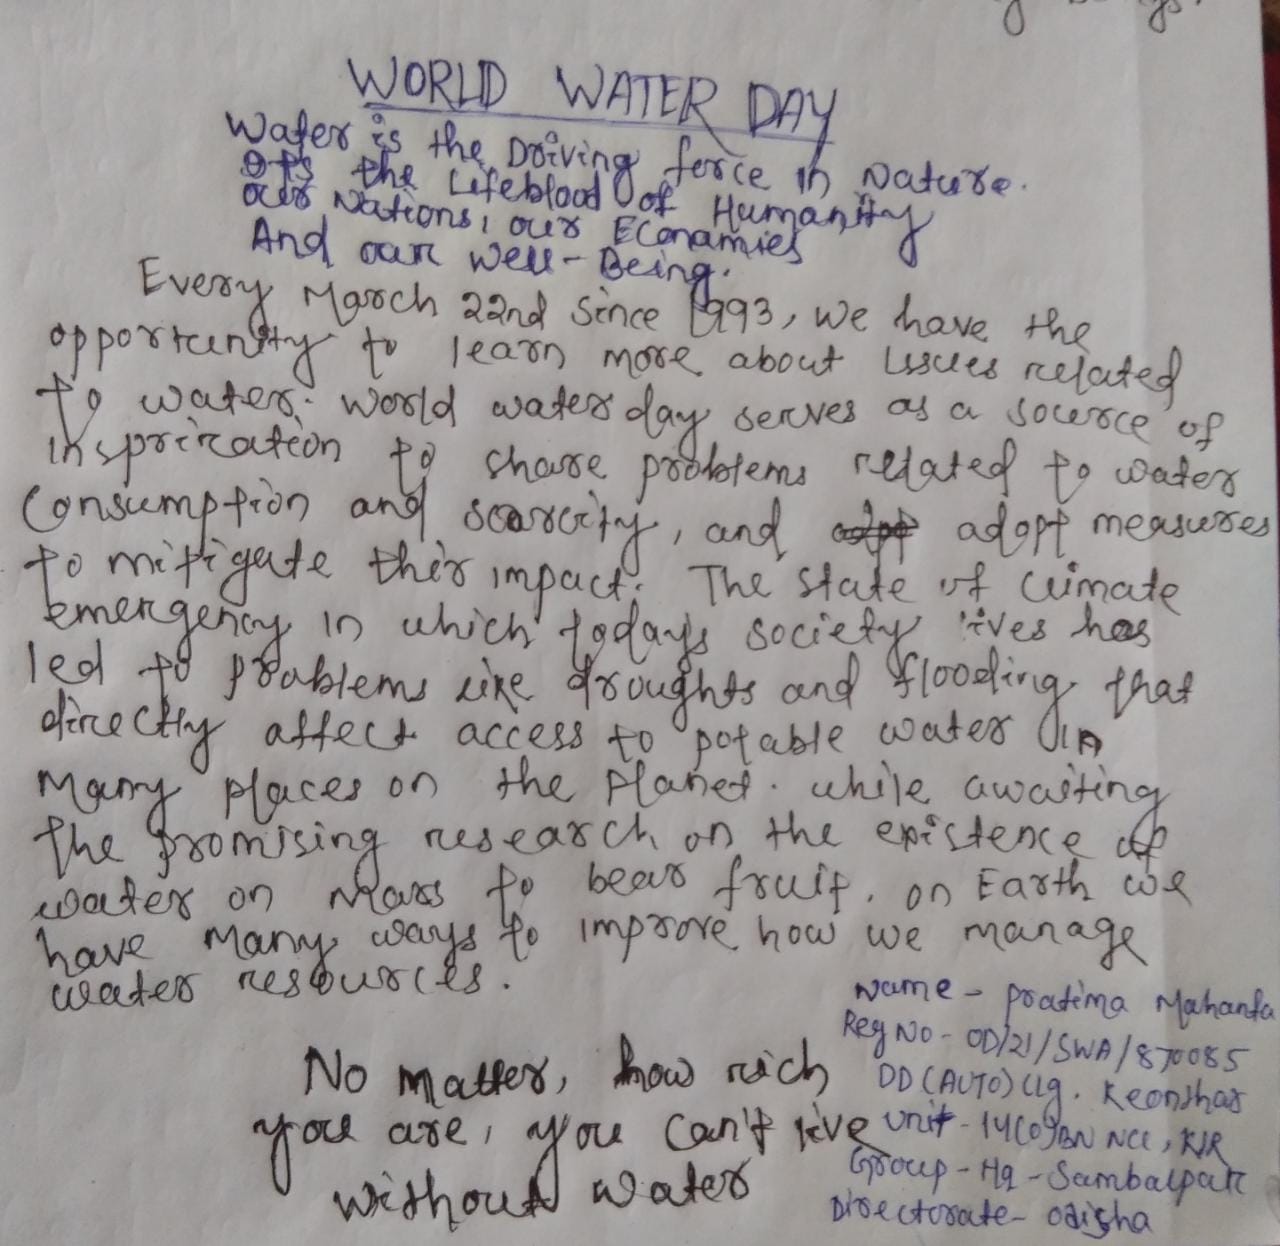 WORLD WATER DAY
Water is the Driving force in Nature.
Its the Lifeblood of Humanity
our Nations, our Economies
And our Well-Being.
Every March 22nd since 1993, we have the
opportunity to learn more about issues related
to water. World water day serves as a source of
inspriration to share problems related to water
Consumption and scarcity, and adopt measures
to mitigate their impact. The state of climate
emergency in which today's society lives has
led to problems like droughts and flooding that
directly affect access to potable water in
Many places on the planet. while awaiting
the promising research on the existence of
water on Mars to bear fruit, on Earth we
have Many ways to improve how we manage
water resources.
No matter, how rich
you are, you can't live
without water
Name - Pratima Mahanta
Reg No - OD/21/SWA/870085
DD (AUTO) Clg. Keonjhar
Unit - 14(O)BN NCC, KJR
Group - Hq - Sambalpur
Directorate - Odisha